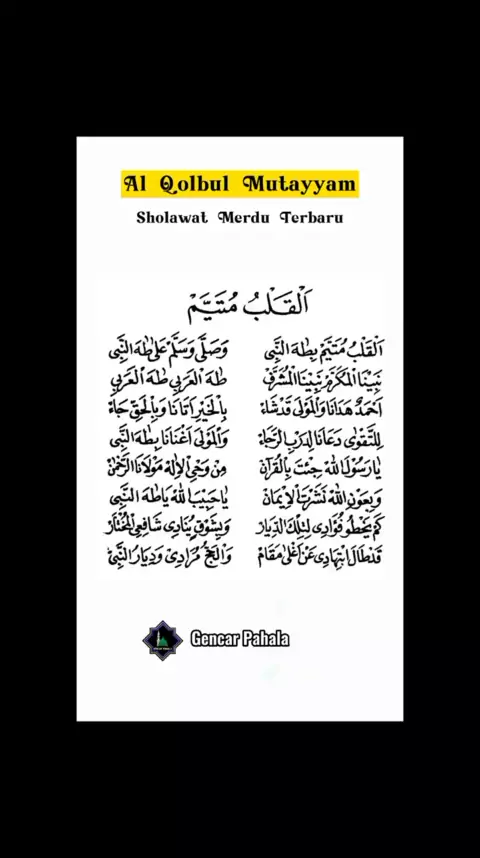 Al Qolbul Mutayyam
Sholawat Merdu Terbaru
اَلْقَلْبُ مُتَيَّمْ
اَلْقَلْبُ مُتَيَّمْ بِطٰهَ النَّبِى وَصَلَّى وَسَلَّمْ عَلٰى طٰهَ النَّبِى
نَبِيْنَا الْمُكَرَّمْ نَبِيْنَا الْمُشَرَّفْ طٰهَ الْعَرَبِى طٰهَ الْعَرَبِى
اَحْمَدْ هَدَانَا وَالْمَوْلٰى قَدْ شَاءْ بِالْخَيْرِ اَتَانَا وَبِالْحَقِّ جَاءْ
لِلتَّقْوٰى دَعَانَا لِدَرْبِ الرَّجَاءْ وَالْمَوْلٰى اَغْنَانَا بِطٰهَ النَّبِى
يَارَسُوْلَ اللهْ جِئْتَ بِالْقُرْآنْ مِنْ وَحْيِ الْاِلٰهْ مَوْلَانَا الرَّحْمٰنْ
وَبِعَوْنِ اللهْ نَشَرْتَ الْاِيْمَانْ يَاحَبِيْبَ اللهْ يَاطٰهَ النَّبِى
كَمْ يَخْطُو فُؤَادِى لِتِلْكَ الدِّيَارْ وَبِشَوْقٍ يُنَادِى شَافِعِى الْمُخْتَارْ
قَدْ طَالَ ابْتِهَادِى عَنْ اَغْلٰى مَقَامْ وَالْحَجُّ مُرَادِىْ وَدِيَارُ النَّبِىّ
Gencar Pahala